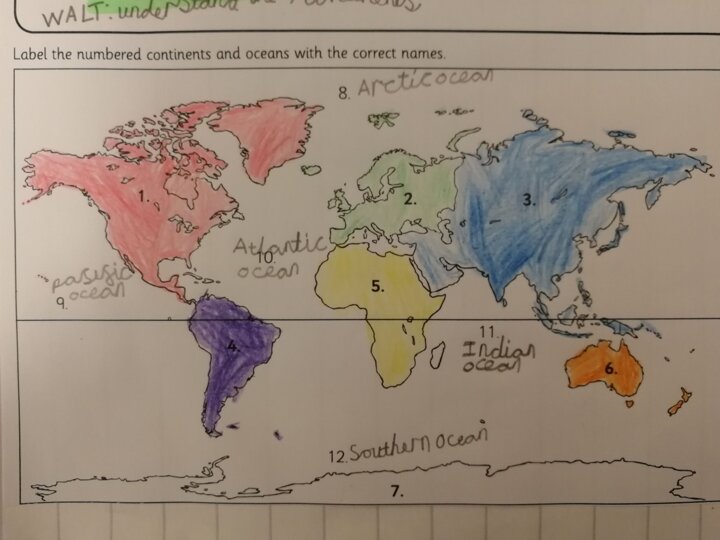 WALT: understand the
Label the numbered continents and oceans with the correct names.
8. Arctic ocean
1.
2.
3.
Atlantic
10.
ocean
pasisic
9. ocean
5.
4.
11
Indian
ocean
6.
12. Southern ocean
7.